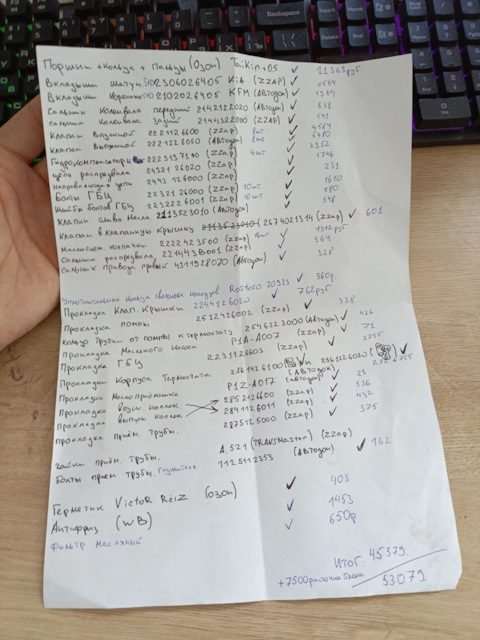 Поршни + кольца + пальцы (Озон) TaiKin +0.5 ✓ 11361руб
Вкладыши шатун STD 2306026405 KiA (ZZAP) ✓ 1564
Вкладыши коренные STD 2102026405 KFM (Автодок) ✓ 1364
Сальник коленвала передний 2142122020 (Автодок) ✓ 638
Сальник коленвала задний 2144322000 (ZZap) ✓ 541
Клапан впускной 2221126600 (ZZap) 8шт ✓ 4584
Клапан выпускной 2221226050 (Автодок) 8шт ✓ 5480
Гидрокомпенсаторы 2223137100 (ZZap) 4шт ✓ 2352
Цепь распредвала 2432126020 (ZZap) ✓ 1746
Направляющая цепи 2443126000 (ZZap) ✓ 231
Болты ГБЦ 2232126000 (ZZap) 10шт ✓ 1610
Шайбы болтов ГБЦ 2232226001 (ZZap) 10шт ✓ 580
Клапан слива масла 2213523010 (Автодок) ✓ 548
Клапан в клапанную крышку 2674021314 (ZZap) ✓ 601
Маслосъем. колпачки 2222423500 (ZZap) 16шт ✓ 1312руб
Сальник распредвала 221443B001 (ZZap) ✓ 364
Сальник привода правый 4311928070 (Автодок) ✓ 328
Уплотнительные кольца свечных колодцев Rosteco 20933 ✓ 360р.
Прокладка Клап. Крышки 2244126020 ✓ 762руб
Прокладка помпы 2512426002 (ZZap) ✓ 338
Кольцо трубки от помпы к термостату 2546223000 (Автодок) ✓ 426
Прокладка Масляного Насоса P1A-A007 (ZZap) ✓ 71
Прокладка ГБЦ 2231126603 (ZZap) ✓ 2755
Прокладки Корпуса Термостата 2561426100 и 2561226020 ✓
Прокладка Маслоприёмника P1Z-A017 (Автодок) ✓ 23
Прокладка впуск коллек 2852126600 (ZZap) ✓ 536
Прокладка выпуск коллек 2841126011 (ZZap) ✓ 432
Прокладка приём. трубы. 2875125000 (ZZap) ✓ 375
Гайки приём. трубы. A.521 (TRANSMaster) (ZZap)
болты прием трубы. 1125112353 (Автодок) ✓ 162
Герметик Victor Reiz (ОЗОН) ✓ 403
Антифриз (WB) ✓ 1453
Фильтр масляный ✓ 650р
Итог 45579.
+7500 53079.